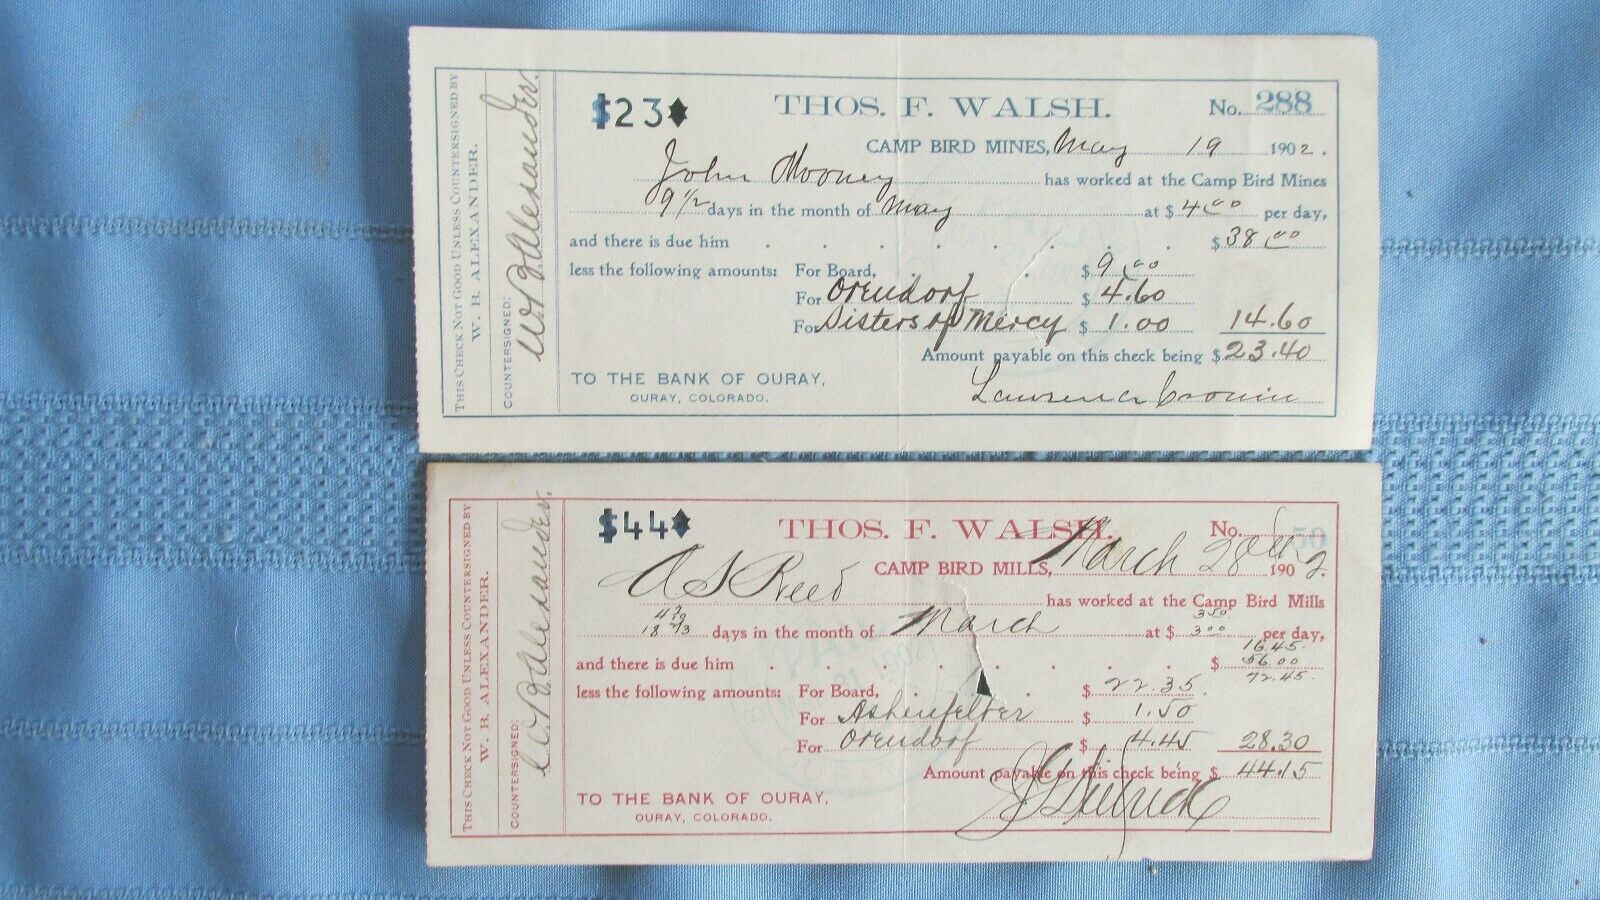 THIS CHECK NOT GOOD UNLESS COUNTERSIGNED BY
W. B. ALEXANDER.
COUNTERSIGNED:
W. B. Alexander.
$23
THOS. F. WALSH.
No. 288
CAMP BIRD MINES, May 19 1902.
John Mooney has worked at the Camp Bird Mines
9 1/2 days in the month of May at $ 4.00 per day,
and there is due him $ 38.00
less the following amounts: For Board, $ 9.00
For Orendorf $ 4.60
For Sisters of Mercy $ 1.00 14.60
Amount payable on this check being $ 23.40
TO THE BANK OF OURAY,
OURAY, COLORADO.
Lawrence Cronin
THIS CHECK NOT GOOD UNLESS COUNTERSIGNED BY
W. B. ALEXANDER.
COUNTERSIGNED:
W. B. Alexander.
$44
THOS. F. WALSH.
No. 50
CAMP BIRD MILLS, March 28 1902.
A S Reed has worked at the Camp Bird Mills
18 2/3 days in the month of March at $ 3.50 3.00 per day,
16.45
and there is due him $ 56.00
72.45
less the following amounts: For Board, $ 22.35
For Ashenfelter $ 1.50
For Orendorf $ 4.45 28.30
Amount payable on this check being $ 44.15
TO THE BANK OF OURAY,
OURAY, COLORADO.